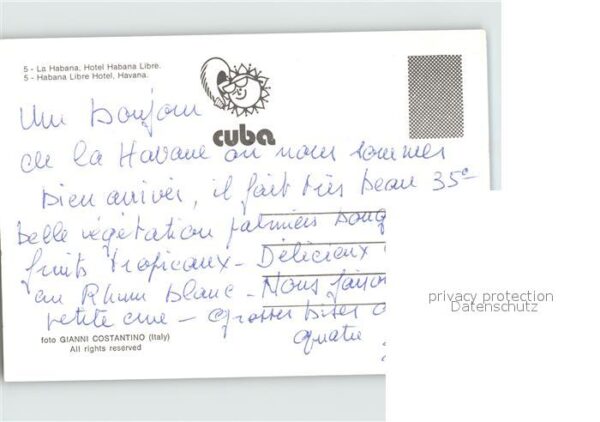 5 - La Habana, Hotel Habana Libre.
5 - Habana Libre Hotel, Havana.
cuba
Un Bonjour
de la Havane où nous sommes
bien arrivés, il fait très beau 35°
belle végétation palmiers
fruits tropicaux - Délicieux
au Rhum blanc - Nous
petite - Grosses bises
quatre
foto GIANNI COSTANTINO (Italy)
All rights reserved
privacy protection
Datenschutz